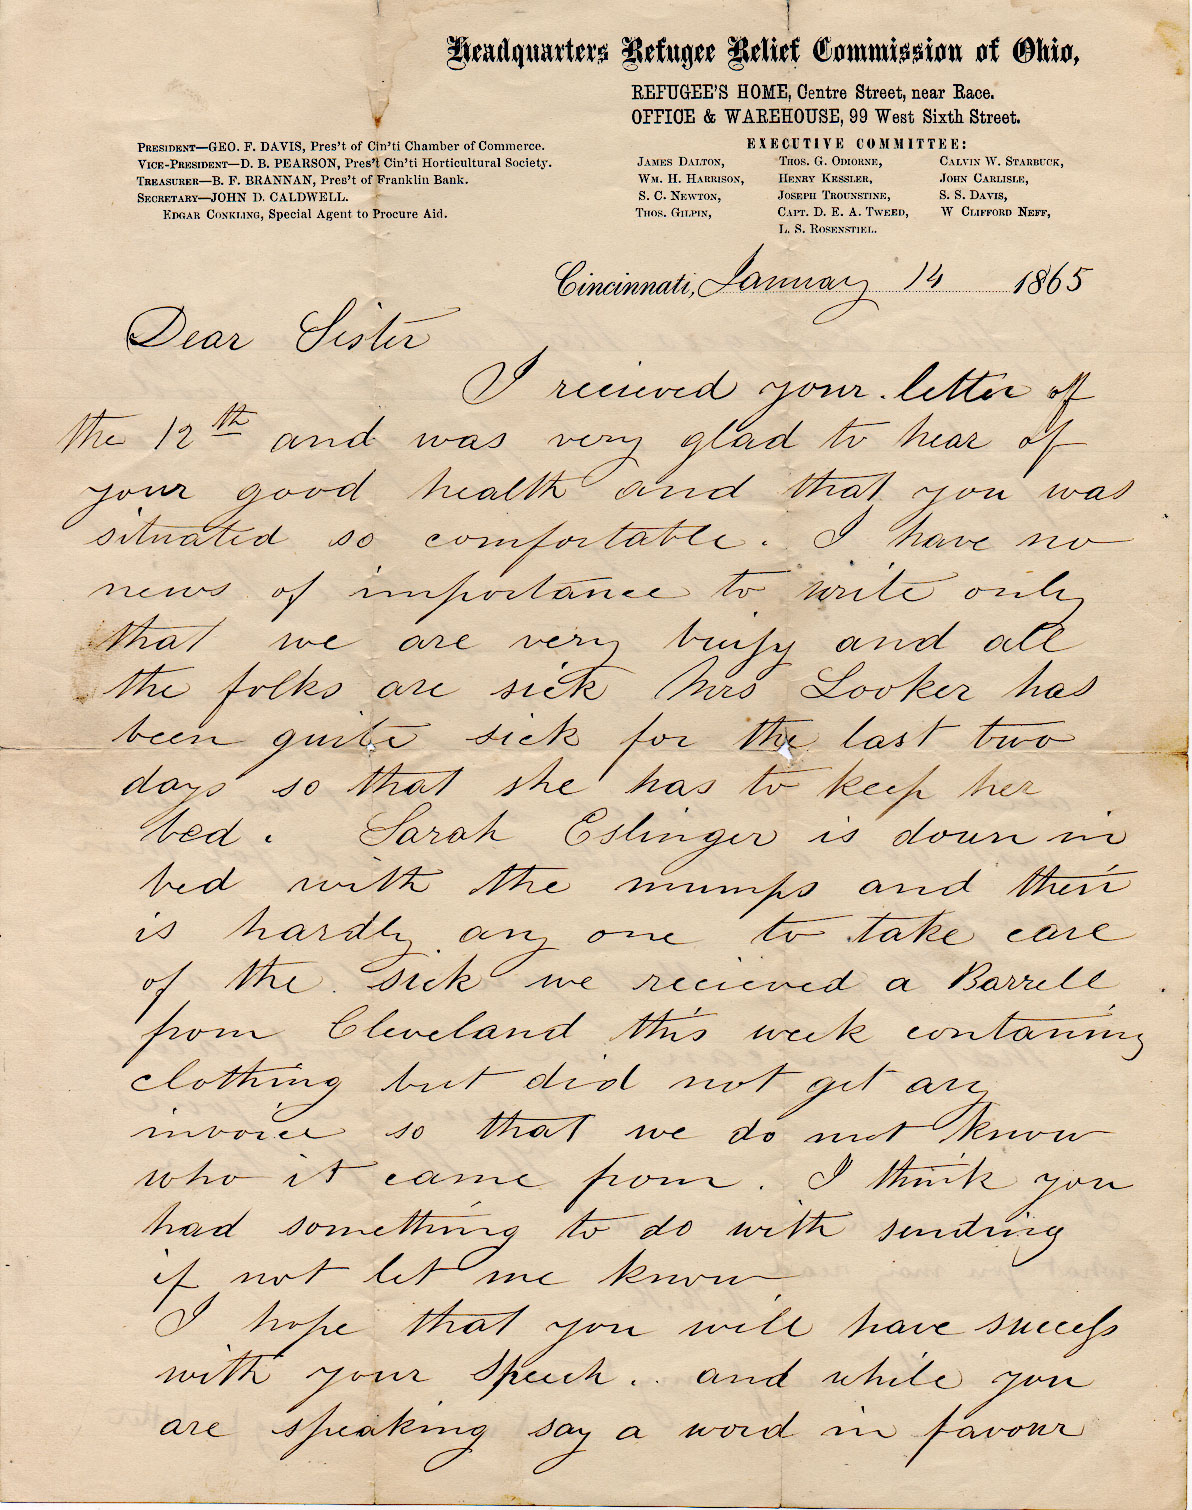 Headquarters Refugee Relief Commission of Ohio,
REFUGEE'S HOME, Centre Street, near Race.
OFFICE & WAREHOUSE, 99 West Sixth Street.
PRESIDENT—GEO. F. DAVIS, Pres't of Cin'ti Chamber of Commerce.
VICE-PRESIDENT—D. B. PEARSON, Pres't Cin'ti Horticultural Society.
TREASURER—B. F. BRANNAN, Pres't of Franklin Bank.
SECRETARY—JOHN D. CALDWELL.
EDGAR CONKLING, Special Agent to Procure Aid.
EXECUTIVE COMMITTEE:
JAMES DALTON, THOS. G. ODIORNE, CALVIN W. STARBUCK,
WM. H. HARRISON, HENRY KESSLER, JOHN CARLISLE,
S. C. NEWTON, JOSEPH TROUNSTINE, S. S. DAVIS,
THOS. GILPIN, CAPT. D. E. A. TWEED, W CLIFFORD NEFF,
L. S. ROSENSTIEL.
Cincinnati, January 14 1865
Dear Sister
I recieved your letter of
the 12th and was very glad to hear of
your good health and that you was
situated so comfortable. I have no
news of importance to write only
that we are very buisy and all
the folks are sick Mrs Looker has
been quite sick for the last two
days so that she has to keep her
bed. Sarah Eslinger is down in
bed with the mumps and their
is hardly any one to take care
of the sick we recieved a Barrell
from Cleveland this week contaning
clothing but did not get any
invoice so that we do not know
who it came from. I think you
had something to do with sending
if not let me know
I hope that you will have success
with your speech.. and while you
are speaking say a word in favour